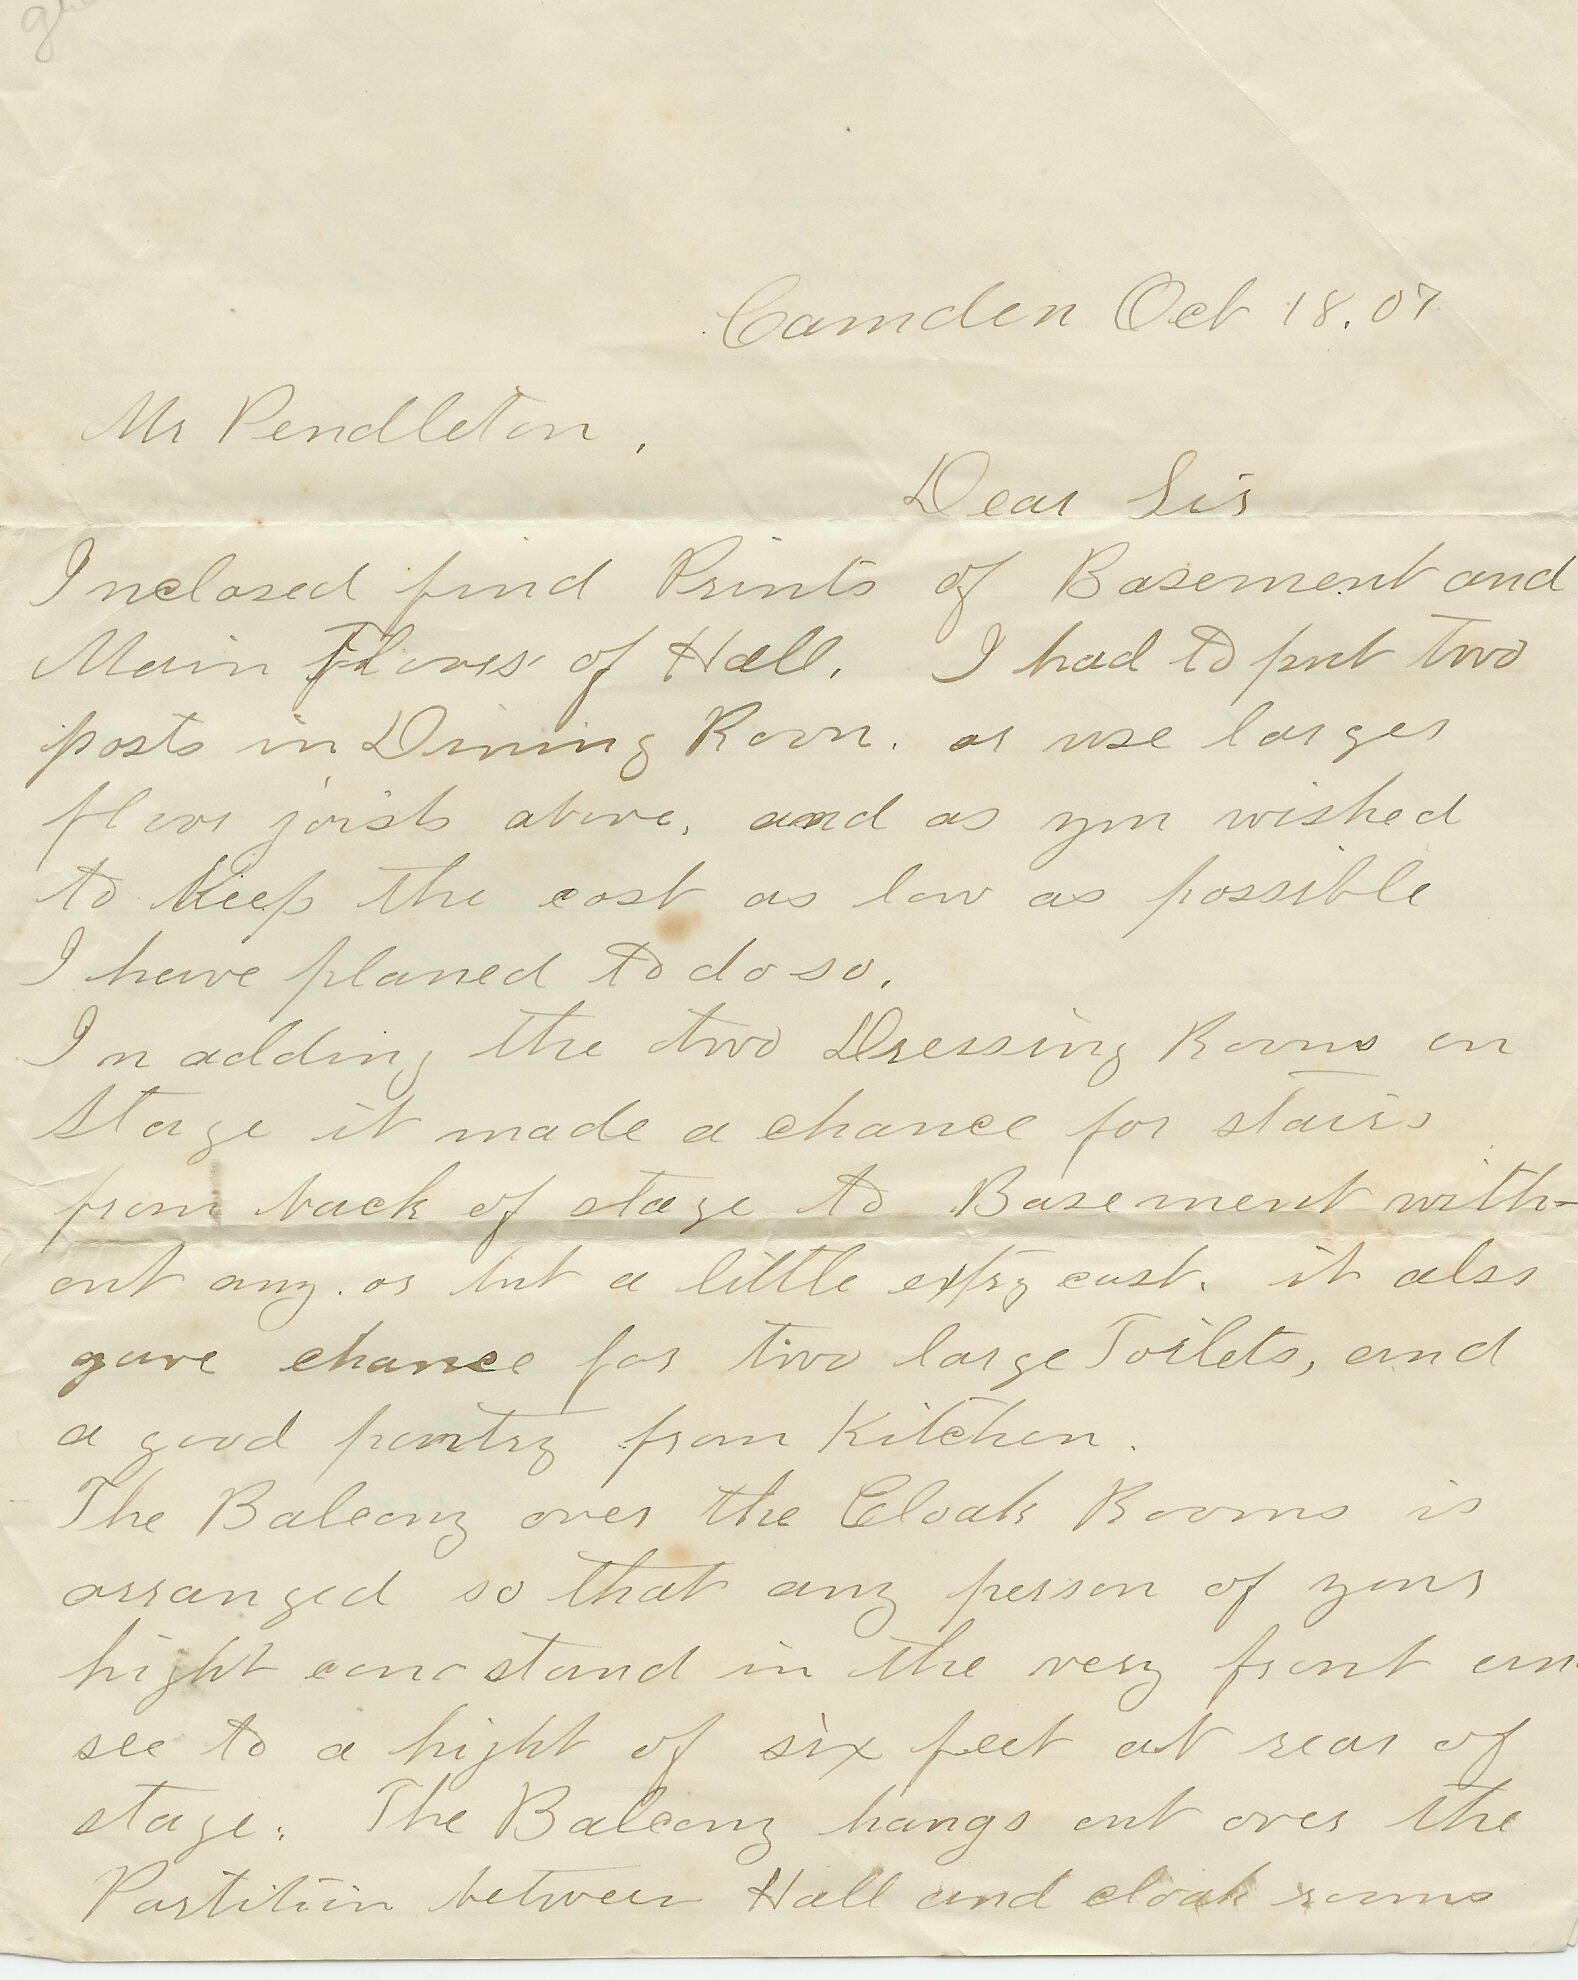 Camden Oct 18. 07
Mr Pendleton.
Dear Sir
Inclosed find Prints of Basement and
Main Floors of Hall. I had to put two
posts in Dining Room. or use larger
floor joists above, and as you wished
to keep the cost as low as possible
I have planed to do so.
In adding the two Dressing Rooms on
Stage it made a chance for stairs
from back of stage to Basement with-
out any. or but a little extry cost. it also
gave chance for two large Toilets, and
a good pantry from Kitchen.
The Balcony over the Cloak Rooms is
arranged so that any person of your
hight can stand in the very front an
see to a hight of six feet at rear of
stage. The Balcony hangs out over the
Partition between Hall and cloak rooms